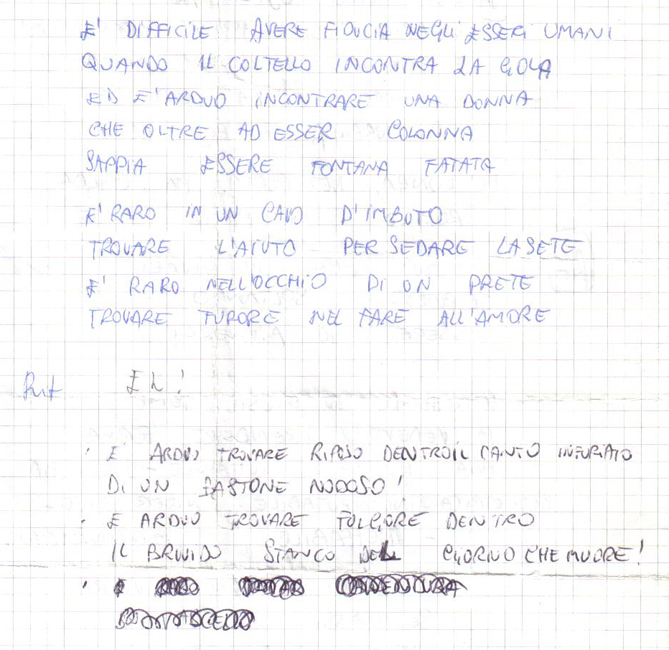 E' DIFFICILE AVERE FIDUCIA NEGLI ESSERI UMANI
QUANDO IL COLTELLO INCONTRA LA GOLA
ED E' ARDUO INCONTRARE UNA DONNA
CHE OLTRE AD ESSER COLONNA
SAPPIA ESSERE FONTANA FATATA
E' RARO IN UN CAVO D'IMBUTO
TROVARE L'AIUTO PER SEDARE LA SETE
E' RARO NELL'OCCHIO DI UN PRETE
TROVARE FURORE NEL FARE ALL'AMORE
Rit EH!
E ARDUO TROVARE RIPOSO DENTRO IL CANTO INFURIATO
DI UN BASTONE NODOSO!
E ARDUO TROVARE FULGORE DENTRO
IL BRIVIDO STANCO DEL GIORNO CHE MUORE!